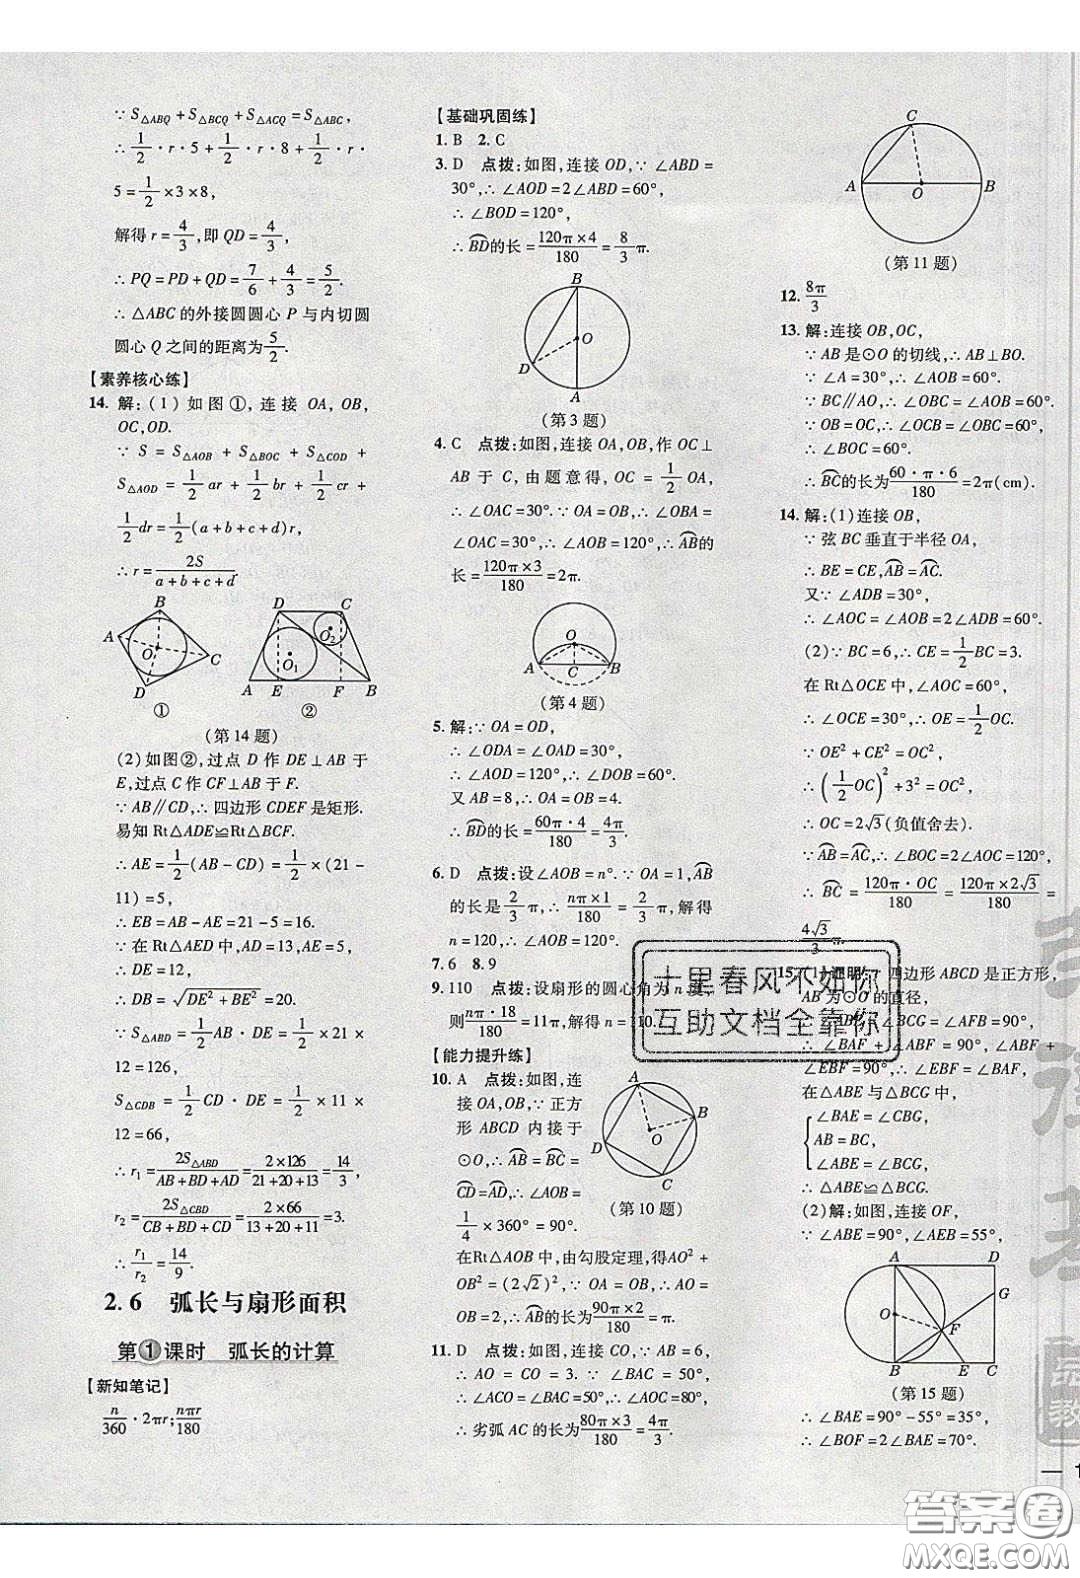 ∵ S△ABQ + S△BCQ + S△ACQ = S△ABC,
∴ 1/2 · r · 5 + 1/2 · r · 8 + 1/2 · r ·
5 = 1/2 × 3 × 8,
解得 r = 4/3, 即 QD = 4/3,
∴ PQ = PD + QD = 7/6 + 4/3 = 5/2.
∴ △ABC 的外接圆圆心 P 与内切圆
圆心 Q 之间的距离为 5/2.
【素养核心练】
14. 解:(1) 如图①, 连接 OA, OB,
OC, OD.
∵ S = S△AOB + S△BOC + S△COD +
S△AOD = 1/2 ar + 1/2 br + 1/2 cr +
1/2 dr = 1/2 (a + b + c + d) r,
∴ r = 2S/(a + b + c + d).
A B C D O
①
A B C D E F O₁ O₂
②
(第 14 题)
(2) 如图②, 过点 D 作 DE ⊥ AB 于
E, 过点 C 作 CF ⊥ AB 于 F.
∵ AB∥CD, ∴ 四边形 CDEF 是矩形.
易知 Rt△ADE≌Rt△BCF.
∴ AE = 1/2 (AB − CD) = 1/2 × (21 −
11) = 5,
∴ EB = AB − AE = 21 − 5 = 16.
∵ 在 Rt△AED 中, AD = 13, AE = 5,
∴ DE = 12,
∴ DB = √(DE² + BE²) = 20.
∵ S△ABD = 1/2 AB · DE = 1/2 × 21 ×
12 = 126,
S△CDB = 1/2 CD · DE = 1/2 × 11 ×
12 = 66,
∴ r₁ = 2S△ABD/(AB + BD + AD) = (2 × 126)/(21 + 20 + 13) = 14/3,
r₂ = 2S△CBD/(CB + BD + CD) = (2 × 66)/(13 + 20 + 11) = 3.
∴ r₁/r₂ = 14/9.
2.6 弧长与扇形面积
第①课时 弧长的计算
【新知笔记】
n/360 · 2πr; nπr/180
【基础巩固练】
1. B 2. C
3. D 点拨:如图, 连接 OD, ∵ ∠ABD =
30°, ∴ ∠AOD = 2∠ABD = 60°,
∴ ∠BOD = 120°,
∴ BD⌒的长 = (120π × 4)/180 = 8/3 π.
B O D A
(第 3 题)
4. C 点拨:如图, 连接 OA, OB, 作 OC ⊥
AB 于 C, 由题意得, OC = 1/2 OA,
∴ ∠OAC = 30°. ∵ OA = OB, ∴ ∠OBA =
∠OAC = 30°, ∴ ∠AOB = 120°, ∴ AB⌒的
长 = (120π × 3)/180 = 2π.
O A C B
(第 4 题)
5. 解:∵ OA = OD,
∴ ∠ODA = ∠OAD = 30°,
∴ ∠AOD = 120°, ∴ ∠BOD = 60°.
又 AB = 8, ∴ OA = OB = 4.
∴ BD⌒的长 = (60π · 4)/180 = 4π/3.
6. D 点拨:设∠AOB = n°. ∵ OA = 1, AB⌒
的长是 2/3 π, ∴ (nπ × 1)/180 = 2/3 π, 解得
n = 120, ∴ ∠AOB = 120°.
7. 6 8. 9
9. 110 点拨:设扇形的圆心角为 n 度,
则 (nπ · 18)/180 = 11π, 解得 n = 110.
【能力提升练】
10. A 点拨:如图, 连
接 OA, OB, ∵ 正方
形 ABCD 内接于
⊙O, ∴ AB⌒ = BC⌒ =
CD⌒ = AD⌒, ∴ ∠AOB =
1/4 × 360° = 90°.
A B C D O
(第 10 题)
在Rt△AOB 中, 由勾股定理, 得AO² +
OB² = (2√2)², ∴ AO = 2,
∴ AB⌒的长为 (90π × 2)/180 = π.
11. D 点拨:如图, 连接 CO, ∵ AB = 6,
∴ AO = CO = 3. ∵ ∠BAC = 50°,
∴ ∠OCA = ∠BAC = 50°, ∴ ∠AOC = 80°,
∴ 劣弧 AC 的长为 (80π × 3)/180 = 4π/3.
C A O B
(第 11 题)
12. 8π/3
13. 解:连接 OB, OC,
∵ AB 是⊙O 的切线, ∴ AB ⊥ BO.
∵ ∠A = 30°, ∴ ∠AOB = 60°.
∵ BC∥AO, ∴ ∠OBC = ∠AOB = 60°.
∵ OB = OC, ∴ ∠OCB = ∠OBC = 60°,
∴ ∠BOC = 60°.
∴ BC⌒的长为 (60 · π · 6)/180 = 2π(cm).
14. 解:(1) 连接 OB,
∵ 弦 BC 垂直于半径 OA,
∴ BE = CE, AB⌒ = AC⌒.
又∵ ∠ADB = 30°,
∴ ∠AOC = ∠AOB = 2∠ADB = 60°.
(2) ∵ BC = 6, ∴ CE = 1/2 BC = 3.
在 Rt△OCE 中, ∠AOC = 60°,
∴ ∠OCE = 30°, ∴ OE = 1/2 OC.
∵ OE² + CE² = OC²,
∴ (1/2 OC)² + 3² = OC²,
∴ OC = 2√3 (负值舍去).
∵ AB⌒ = AC⌒, ∴ ∠BOC = 2∠AOC = 120°,
∴ BC⌒ = (120π · OC)/180 = (120π × 2√3)/180 =
4√3/3 π.
15. (1) 证明:∵ 四边形 ABCD 是正方形,
AB 为⊙O 的直径,
∴ ∠ABE = ∠BCG = ∠AFB = 90°,
∴ ∠BAF + ∠ABF = 90°, ∠ABF +
∠EBF = 90°, ∴ ∠EBF = ∠BAF,
在△ABE 与△BCG 中,
{ ∠BAE = ∠CBG,
AB = BC,
∠ABE = ∠BCG,
∴ △ABE≌△BCG.
(2) 解:如图, 连接 OF,
∵ ∠ABE = 90°, ∠AEB = 55°,
A D G O F B E C
(第 15 题)
∴ ∠BAE = 90° − 55° = 35°,
∴ ∠BOF = 2∠BAE = 70°.
十里春风不如你
互助文档全靠你
— 1
答案圈
MXQE.COM